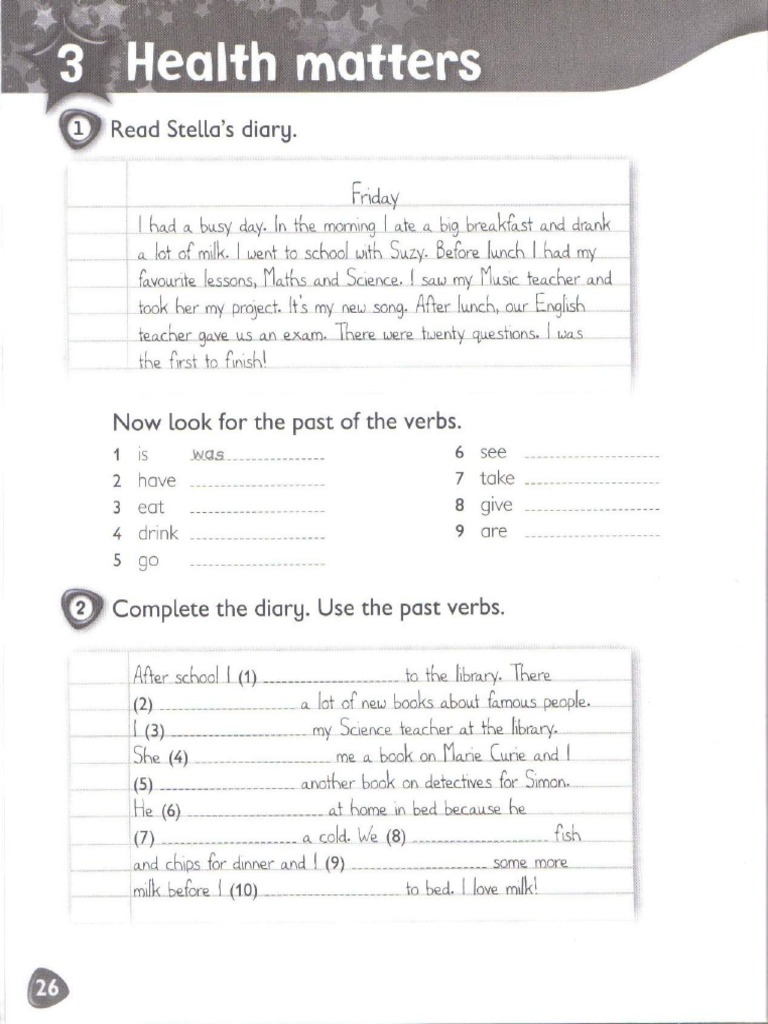 3 Health matters
1 Read Stella's diary.
Friday
I had a busy day. In the morning I ate a big breakfast and drank
a lot of milk. I went to school with Suzy. Before lunch I had my
favourite lessons, Maths and Science. I saw my Music teacher and
took her my project. It's my new song. After lunch, our English
teacher gave us an exam. There were twenty questions. I was
the first to finish!
Now look for the past of the verbs.
1 is was
2 have
3 eat
4 drink
5 go
6 see
7 take
8 give
9 are
2 Complete the diary. Use the past verbs.
After school I (1) to the library. There
(2) a lot of new books about famous people.
I (3) my Science teacher at the library.
She (4) me a book on Marie Curie and I
(5) another book on detectives for Simon.
He (6) at home in bed because he
(7) a cold. We (8) fish
and chips for dinner and I (9) some more
milk before I (10) to bed. I love milk!
26